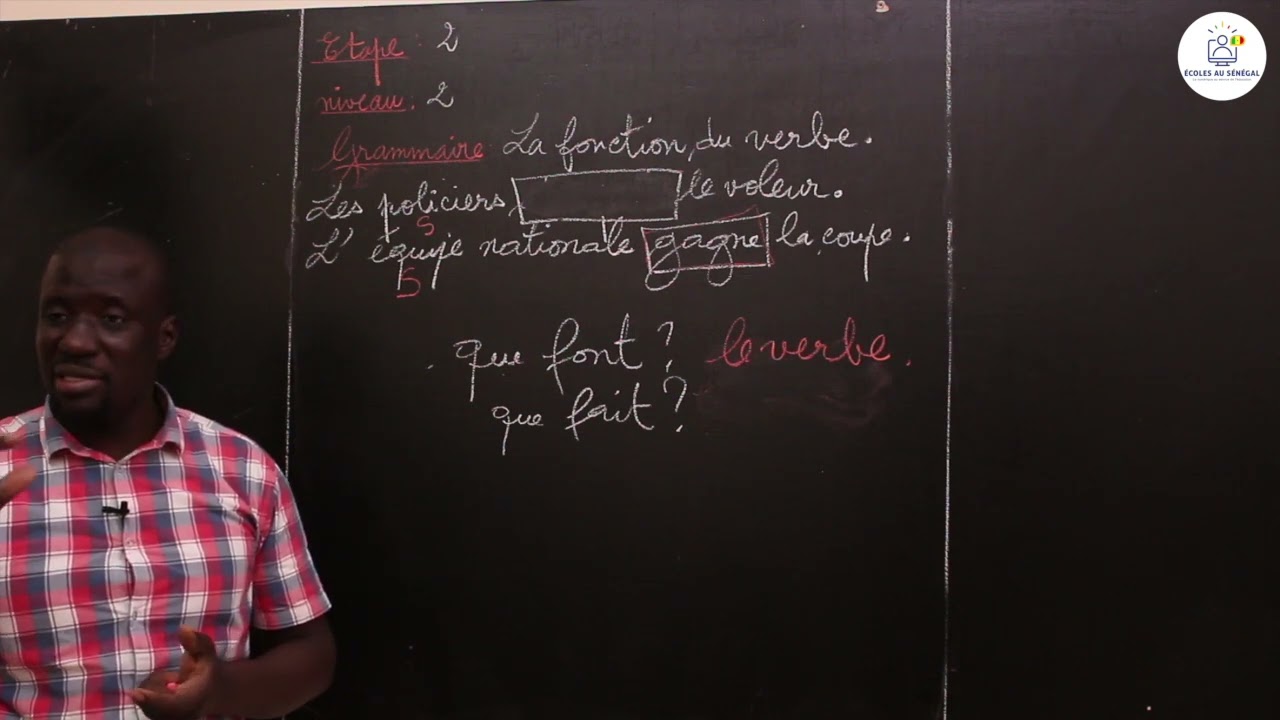 Etape : 2
niveau : 2
Grammaire : La fonction du verbe.
Les policiers le voleur.
S
L'équipe nationale gagne la coupe.
S
que font ? le verbe.
que fait ?
ÉCOLES AU SÉNÉGAL